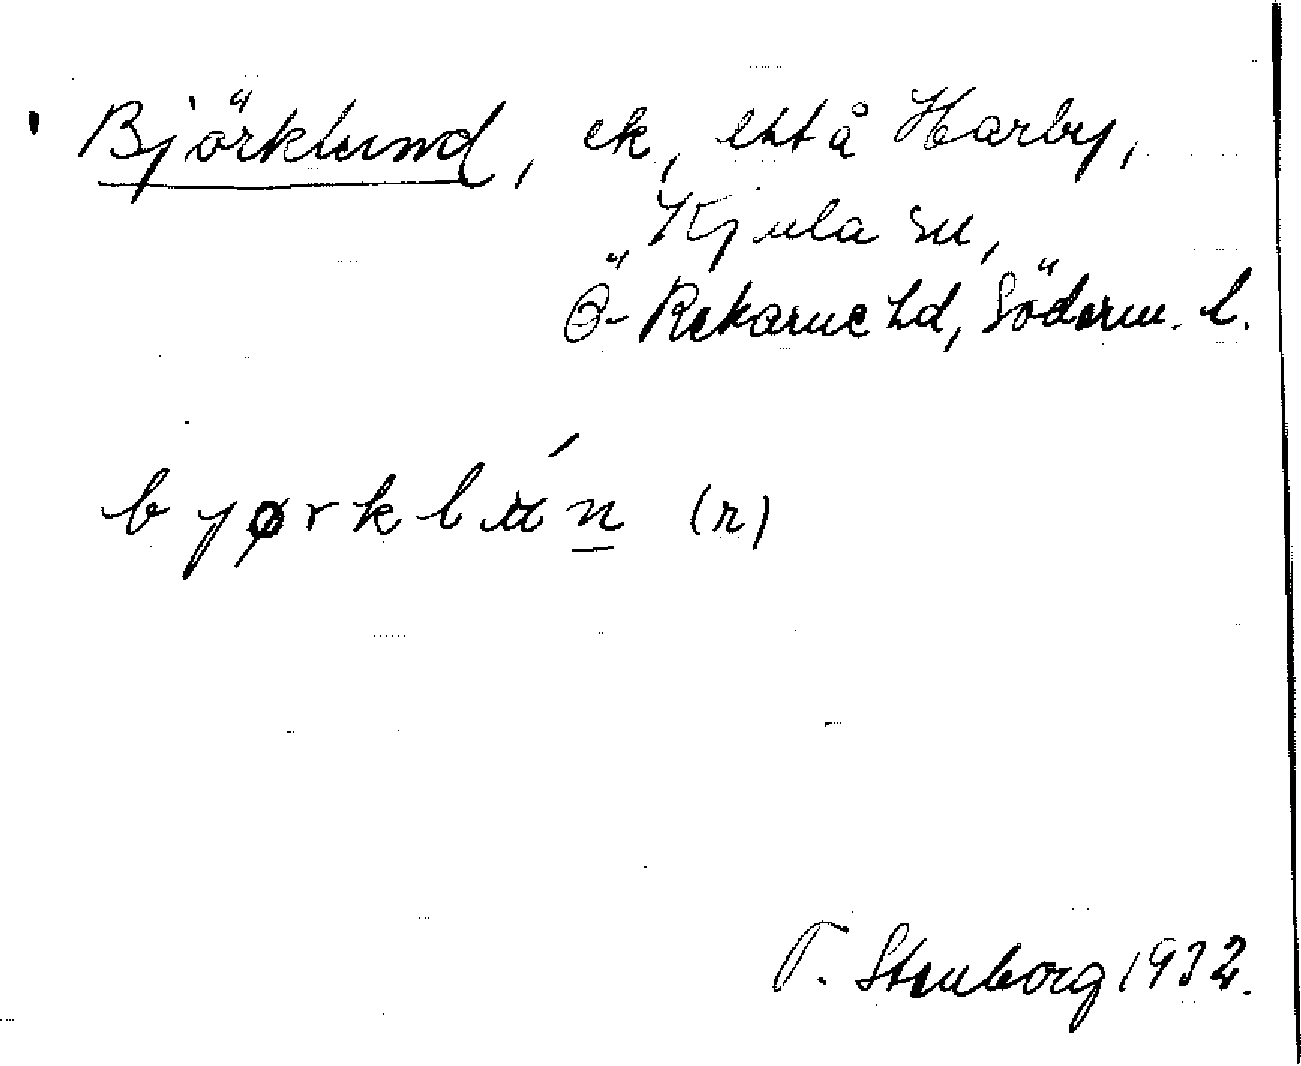 Björklund, ek, ext å Harby,
Kjula sn,
Ö-Rekarne hd, Söderm. l.
bjørklún (n)
T. Stenborg 1932.